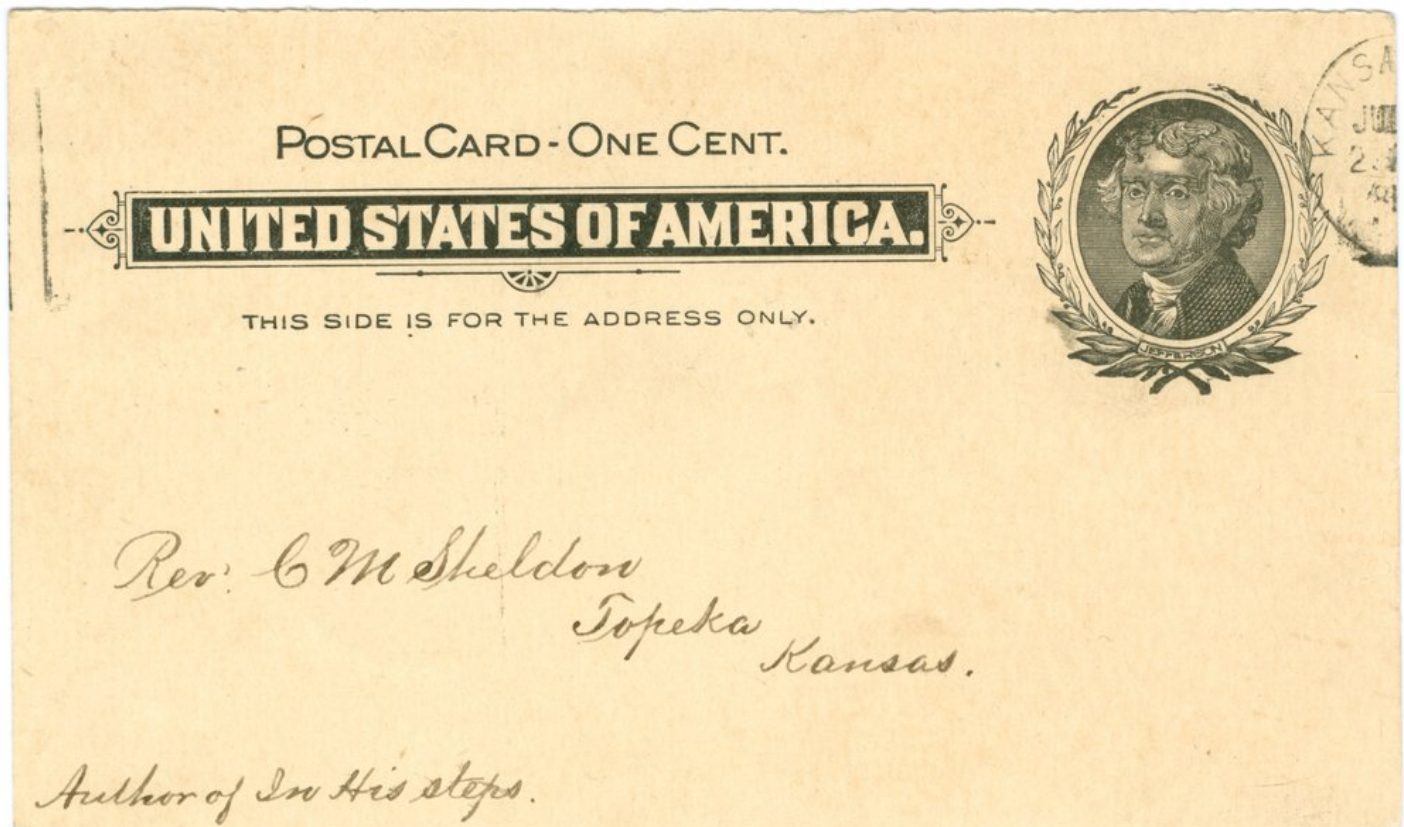 POSTAL CARD - ONE CENT.
UNITED STATES OF AMERICA.
THIS SIDE IS FOR THE ADDRESS ONLY.
JEFFERSON
Rev. C M Sheldon
Topeka
Kansas.
Author of In His steps.